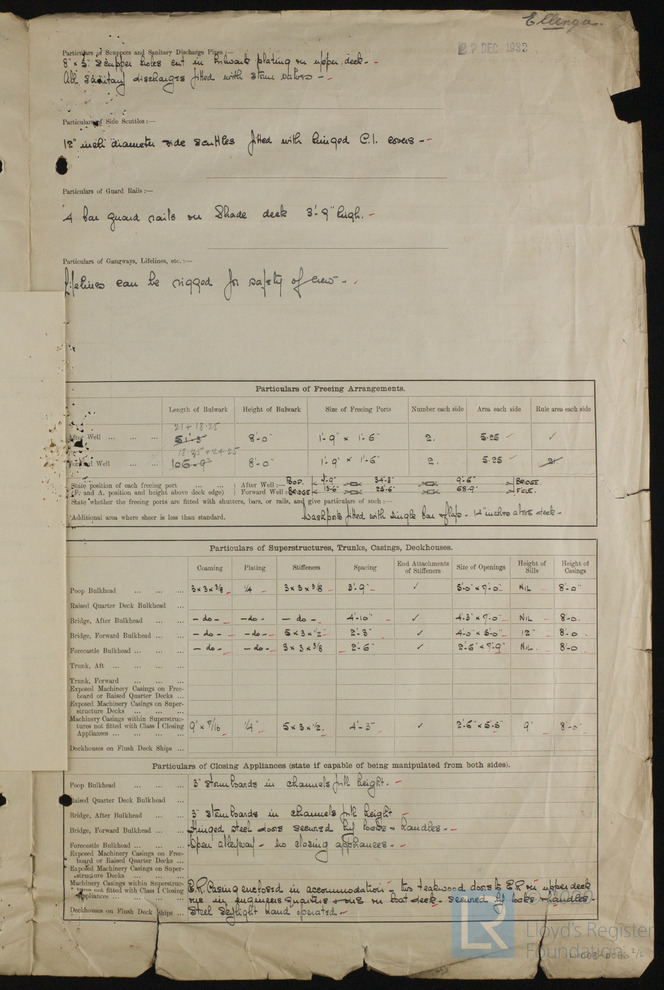 Ellenga.
22 DEC 1932
Particulars of Scuppers and Sanitary Discharge Pipes :—
8" × 5" scupper holes cut in bulwark plating on upper deck.
All sanitary discharges fitted with storm valves
Particulars of Side Scuttles :—
12" inch diameter side scuttles fitted with hinged C.I. covers
Particulars of Guard Rails :—
4 bar guard rails on Shade deck 3'-9" high.
Particulars of Gangways, Lifelines, etc. :—
Lifelines can be rigged for safety of crew
Particulars of Freeing Arrangements.
Length of Bulwark Height of Bulwark Size of Freeing Ports Number each side Area each side Rule area each side
21 + 18.25
After Well 51'-3" 8'-0" 1'-9" × 1'-6" 2. 5.25 ✓ ✓
18.25 + 24.25
Forward Well 106'-9" 8'-0" 1'-9" × 1'-6" 2. 5.25 ✓
State position of each freeing port After Well :— POOP 34'-3" 9'-6" BRIDGE
(F. and A. position and height above deck edge) Forward Well :— BRIDGE FCLE.
State whether the freeing ports are fitted with shutters, bars, or rails, and give particulars of such :—
Additional area where sheer is less than standard. Washports fitted with single bar & flap - 12 inches above deck -
Particulars of Superstructures, Trunks, Casings, Deckhouses.
Coaming Plating Stiffeners Spacing End Attachments of Stiffeners Size of Openings Height of Sills Height of Casings
Poop Bulkhead 3 × 3 × 3/8 1/4 3 × 3 × 3/8 3'-9" ✓ 3'-0" × 7'-0" NIL 8'-0"
Raised Quarter Deck Bulkhead
Bridge, After Bulkhead - do - - do - - do - 4'-10" ✓ 4'-3" × 7'-0" NIL 8'-0.
Bridge, Forward Bulkhead - do - - do - 5 × 3 × 1/2" 2'-3" ✓ 4'-0" × 5'-0" 12" 8'-0
Forecastle Bulkhead - do - - do - 3 × 3 × 3/8 2'-6" 2'-6" × 7'-9" NIL. 8'-0
Trunk, Aft
Trunk, Forward
Exposed Machinery Casings on Freeboard or Raised Quarter Decks
Exposed Machinery Casings on Superstructure Decks
Machinery Casings within Superstructures not fitted with Class I Closing Appliances 9" × 7/16 1/4" 5 × 3 × 1/2. 4'-3" ✓ 2'-6" × 5'-6" 9" 8'-0"
Deckhouses on Flush Deck Ships
Particulars of Closing Appliances (state if capable of being manipulated from both sides).
Poop Bulkhead 3" storm boards in channels full height.
Raised Quarter Deck Bulkhead
Bridge, After Bulkhead 3" storm boards in channels full height
Bridge, Forward Bulkhead Hinged steel doors secured by locks & handles -
Forecastle Bulkhead Open alleyway - no closing appliances -
Exposed Machinery Casings on Freeboard or Raised Quarter Decks
Exposed Machinery Casings on Superstructure Decks
Machinery Casings within Superstructures not fitted with Class I Closing Appliances E.R. Casing enclosed in accommodation - two teakwood doors to E.R. on upper deck
one in engineers quarters & one on boat deck - secured by locks & handles -
Deckhouses on Flush Deck Ships Steel skylight hand operated -
LR Lloyd's Register
Foundation